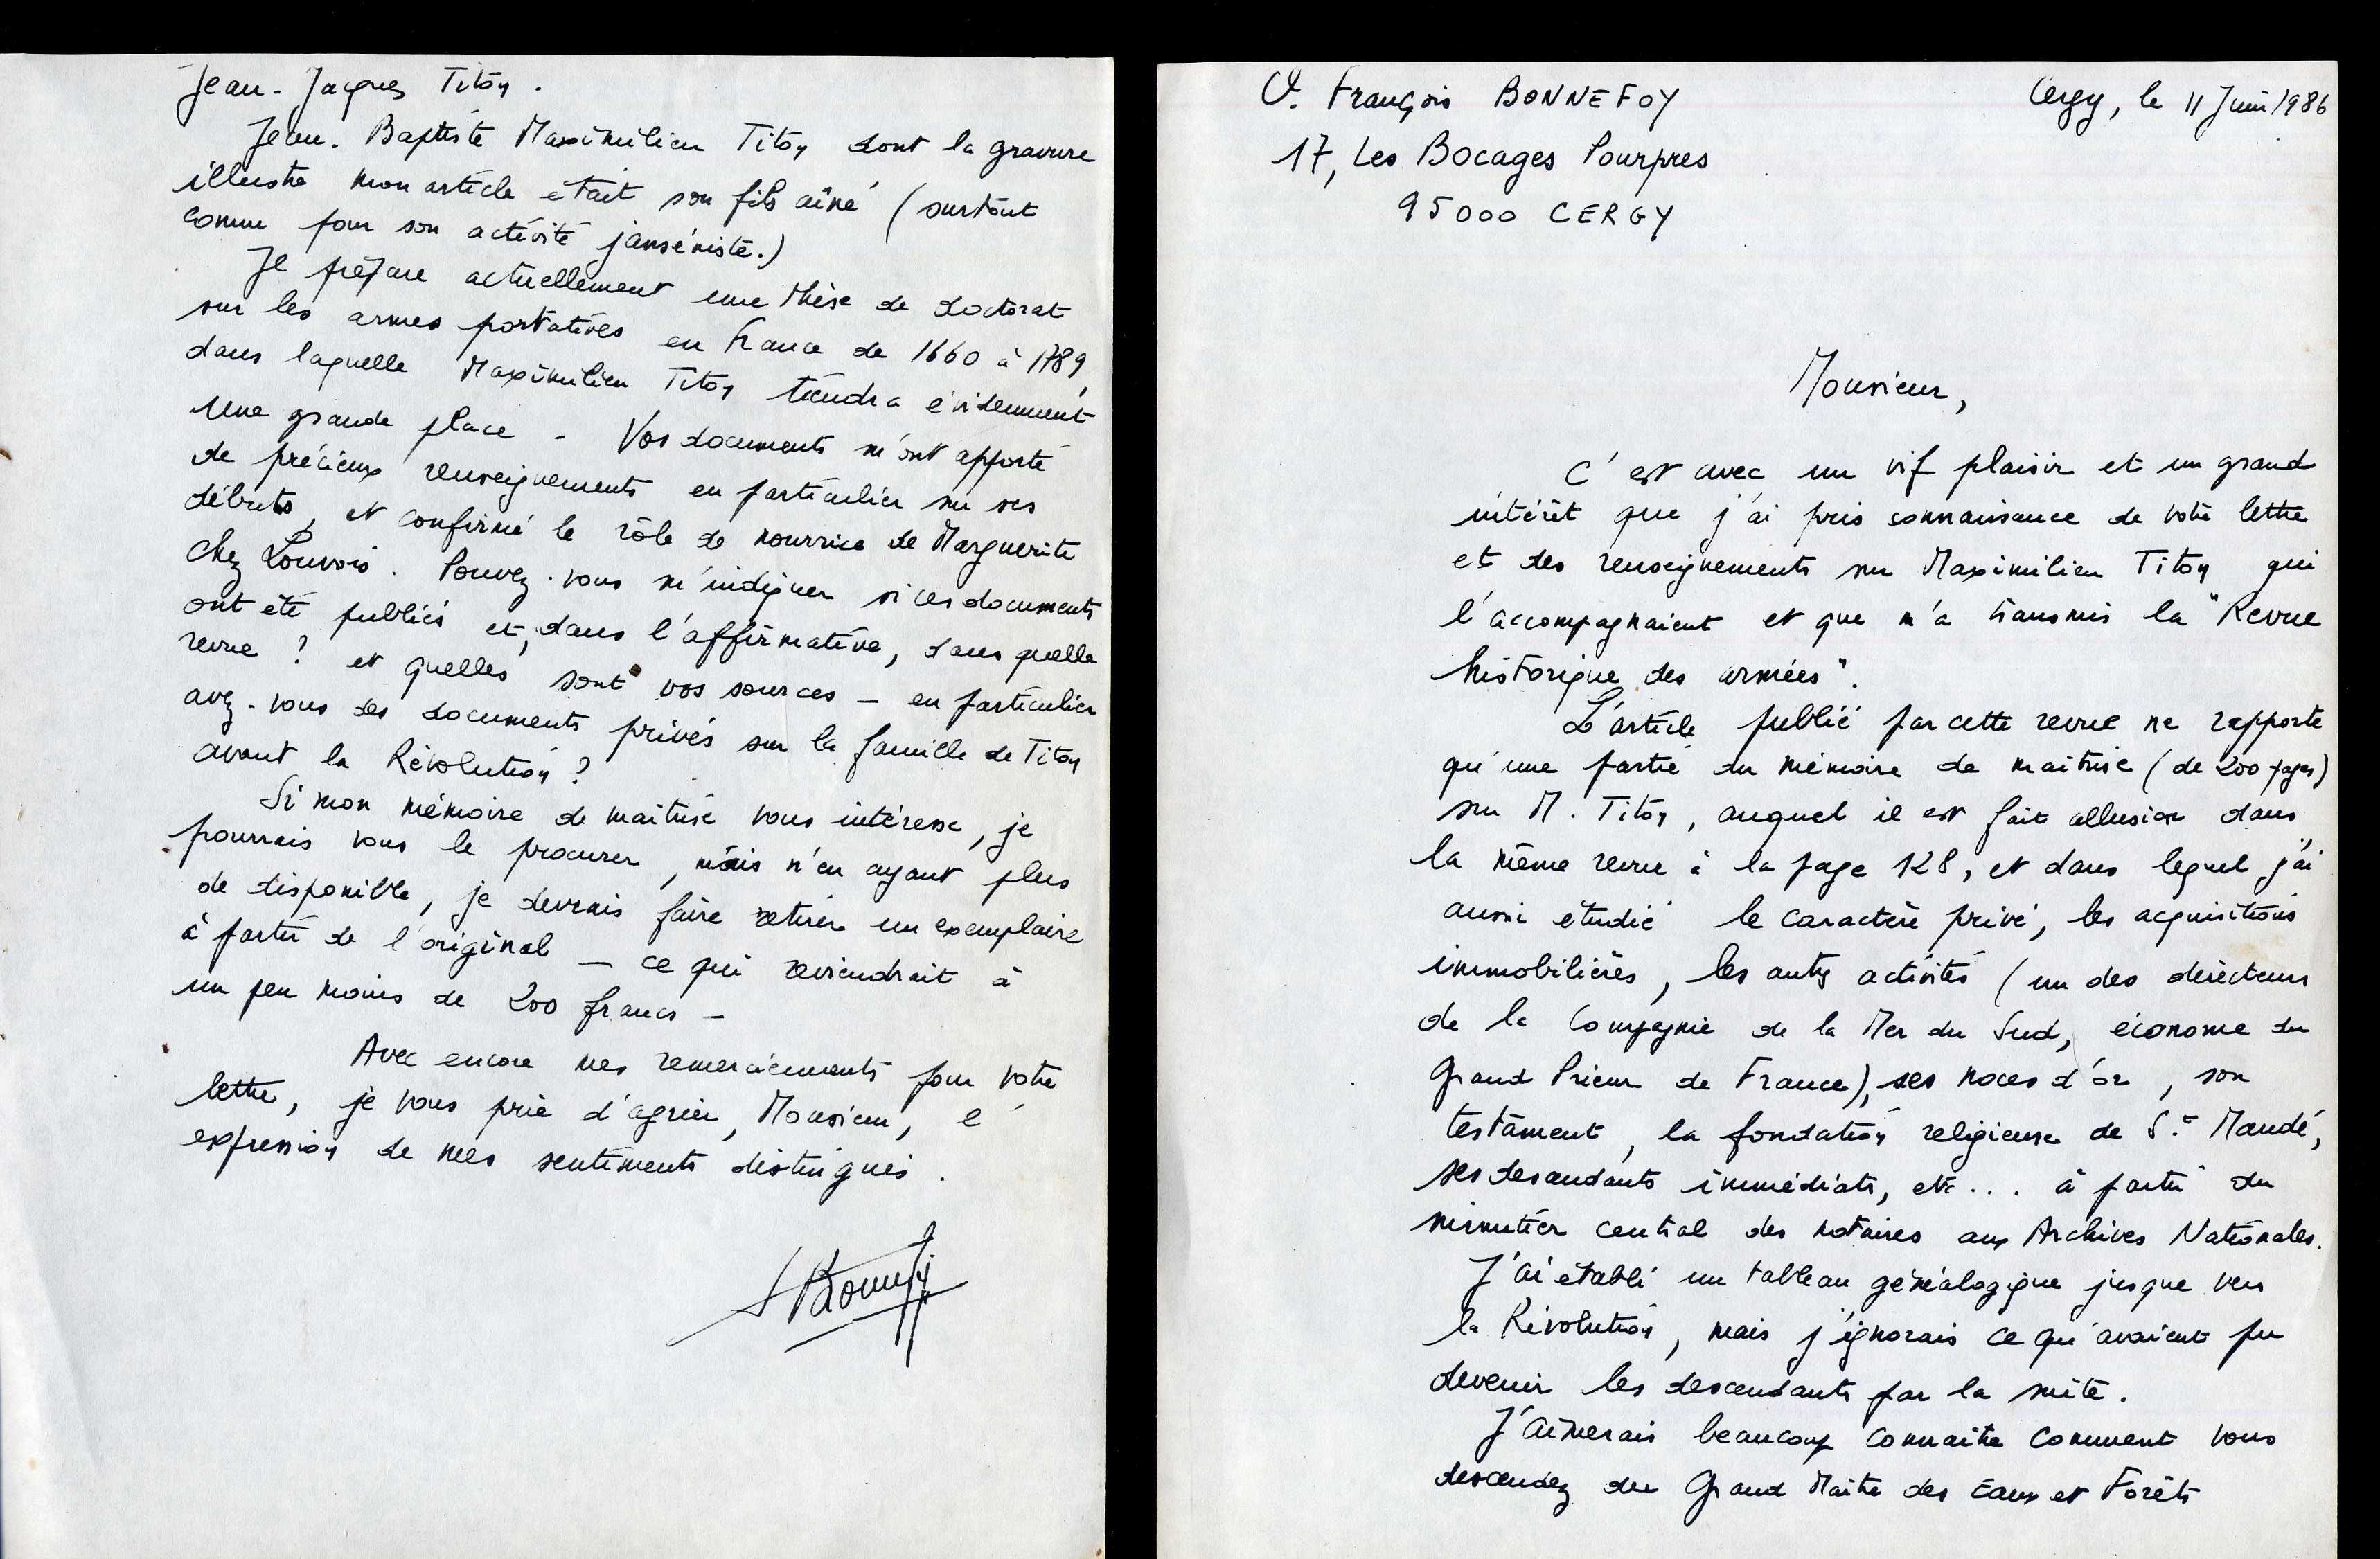 O. François BONNEFOY
Cergy, le 11 Juin 1986
17, Les Bocages Pourpres
95000 CERGY
Monsieur,
C'est avec un vif plaisir et un grand
intérêt que j'ai pris connaissance de votre lettre
et des renseignements sur Maximilien Titon qui
l'accompagnaient et que m'a transmis la "Revue
historique des armées".
L'article publié par cette revue ne rapporte
qu'une partie du mémoire de maîtrise (de 200 pages)
sur M. Titon, auquel il est fait allusion dans
la même revue à la page 128, et dans lequel j'ai
aussi étudié le caractère privé, les acquisitions
immobilières, les autres activités (un des directeurs
de la Compagnie de la Mer du Sud, économe du
Grand Prieur de France), ses noces d'or, son
testament, la fondation religieuse de St Mandé,
ses descendants immédiats, etc... à partir du
minutier central des notaires aux Archives Nationales.
J'ai établi un tableau généalogique jusque vers
la Révolution, mais j'ignorais ce qu'avaient pu
devenir les descendants par la suite.
J'aimerais beaucoup connaître comment vous
descendez du Grand Maître des Eaux et Forêts
Jean-Jacques Titon.
Jean-Baptiste Maximilien Titon dont la gravure
illustre mon article était son fils aîné (surtout
connu pour son activité janséniste.)
Je prépare actuellement une thèse de doctorat
sur les armes portatives en France de 1660 à 1789,
dans laquelle Maximilien Titon tiendra évidemment
une grande place - Vos documents m'ont apporté
de précieux renseignements en particulier sur ses
débuts, et confirmé le rôle de nourrice de Marguerite
chez Louvois. Pouvez-vous m'indiquer si ces documents
ont été publiés et, dans l'affirmative, dans quelle
revue ? et quelles sont vos sources - en particulier
avez-vous des documents privés sur la famille de Titon
avant la Révolution ?
Si mon mémoire de maîtrise vous intéresse, je
pourrais vous le procurer, mais n'en ayant plus
de disponible, je devrais faire retirer un exemplaire
à partir de l'original - ce qui reviendrait à
un peu moins de 200 francs -
Avec encore mes remerciements pour votre
lettre, je vous prie d'agréer, Monsieur, l'
expression de mes sentiments distingués.